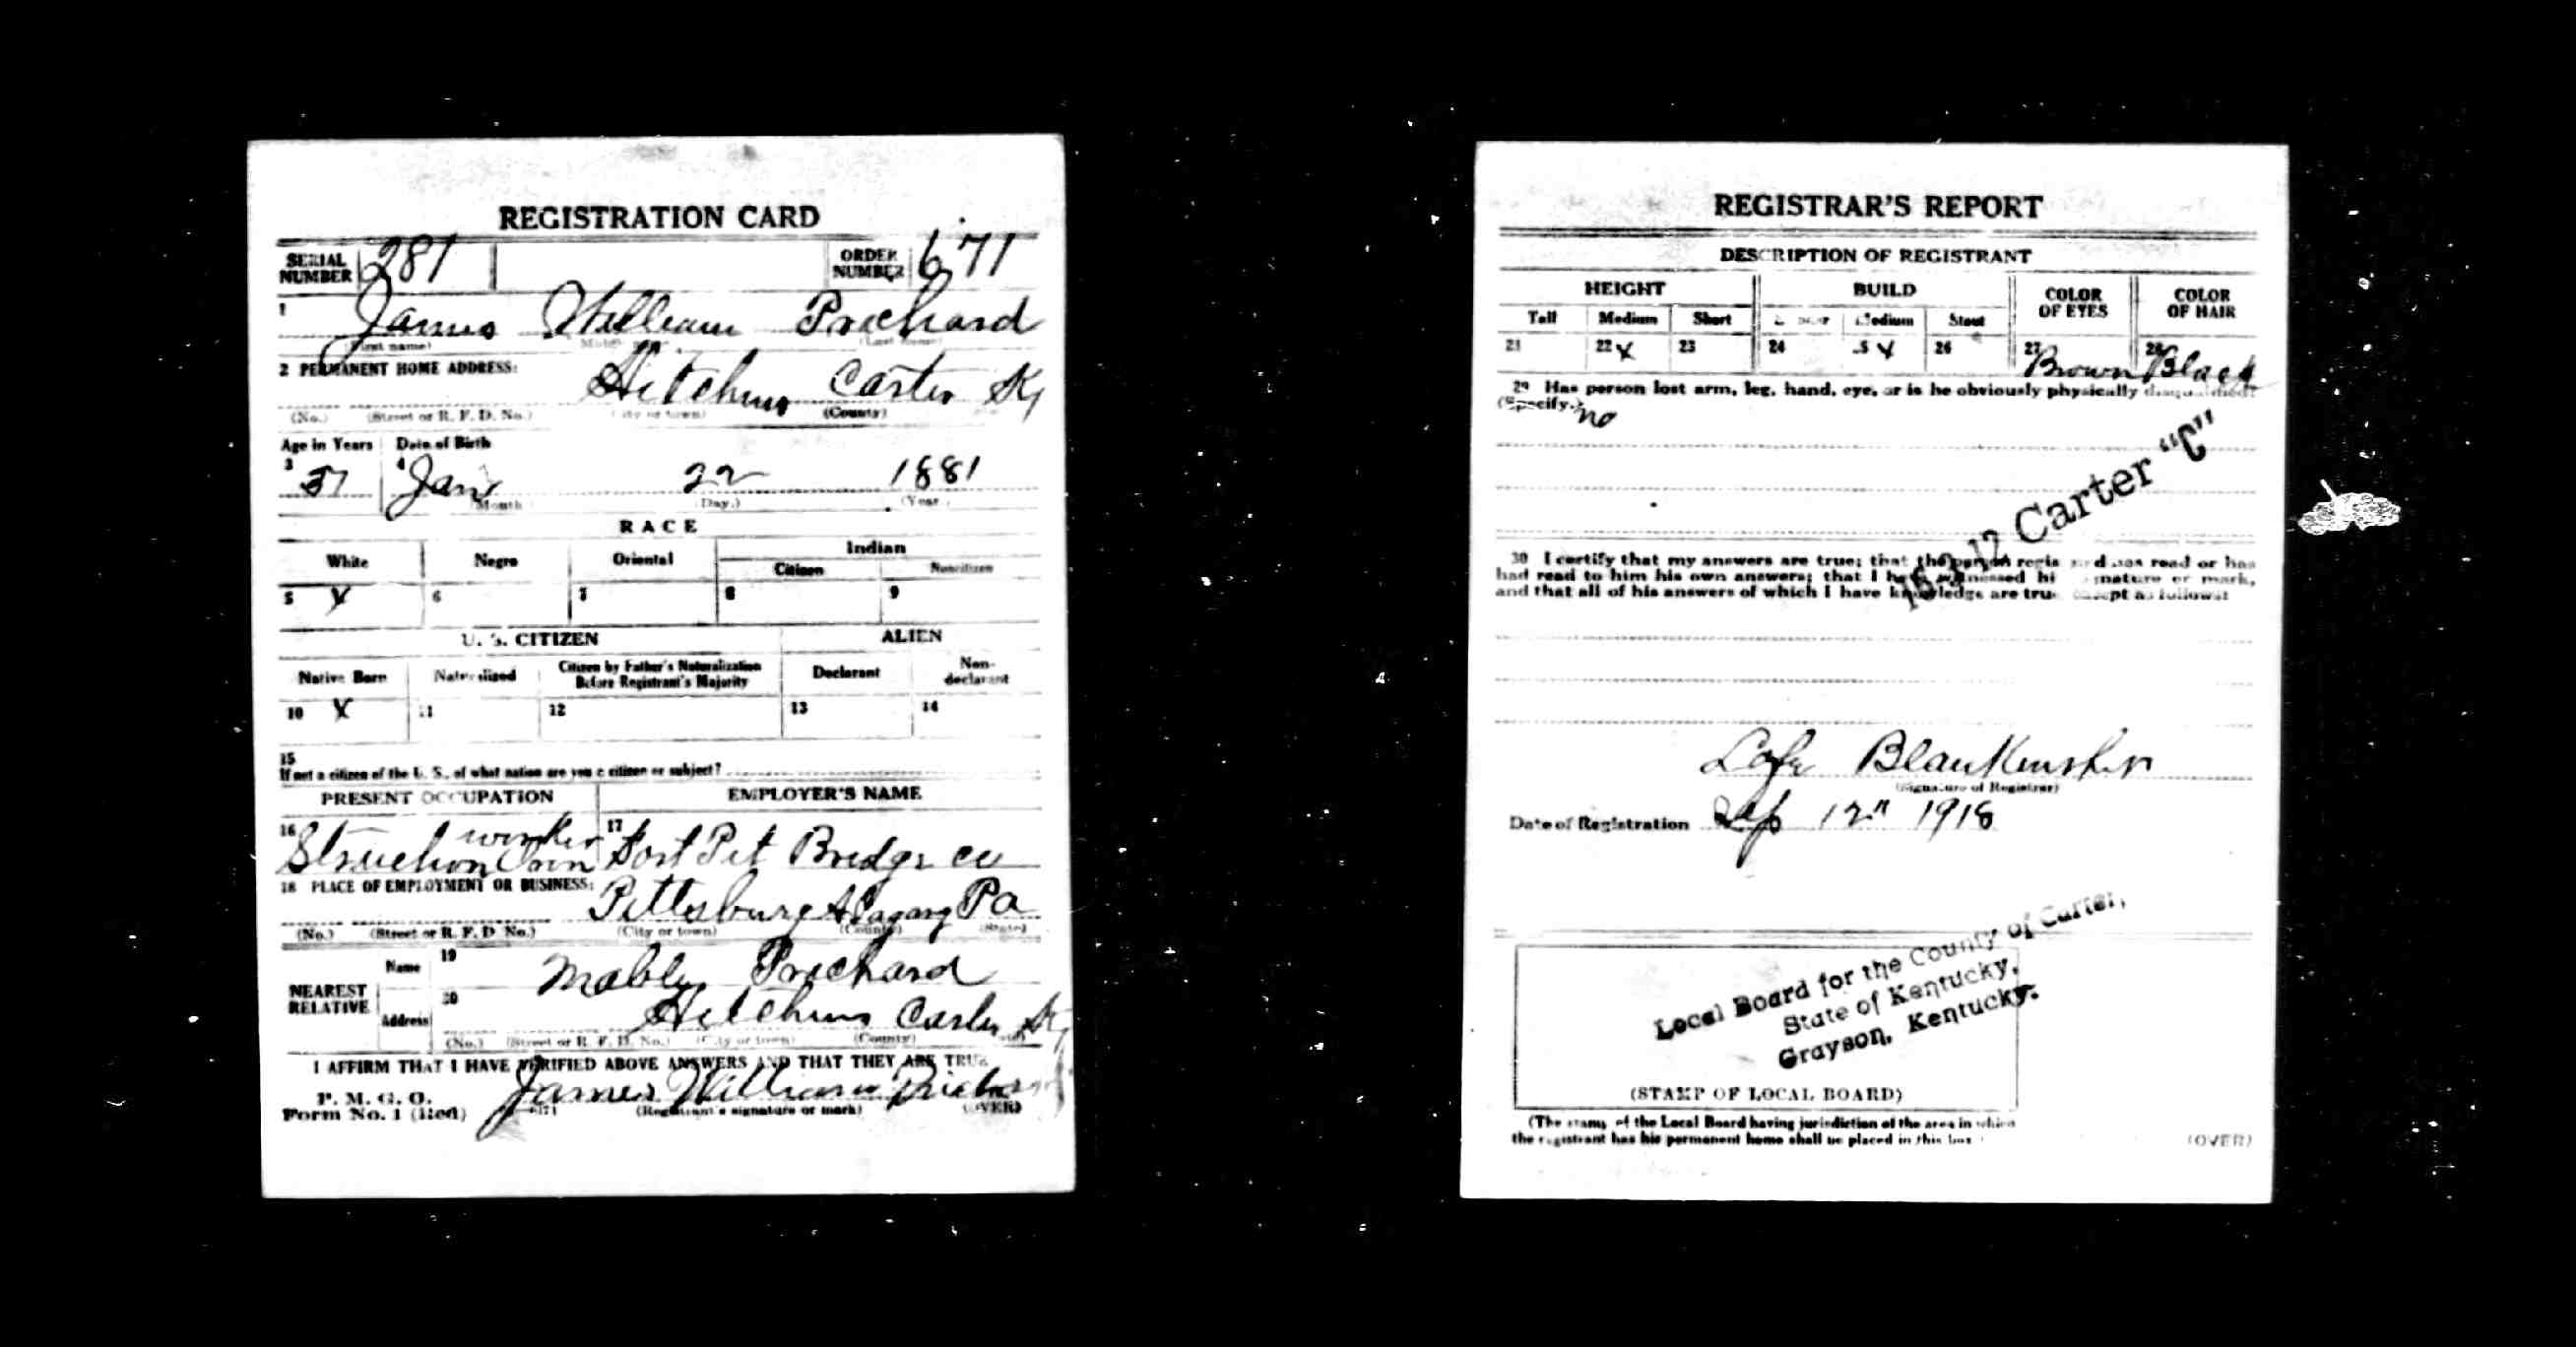 REGISTRATION CARD
SERIAL NUMBER 281 ORDER NUMBER 671
1 James William Prichard
(First name) (Last name)
2 PERMANENT HOME ADDRESS:
Hitchins Carter Ky
(No.) (Street or R. F. D. No.) (City or town) (County)
Age in Years Date of Birth
3 37 4 Jan 22 1881
(Month) (Day.) (Year)
RACE
White Negro Oriental Indian
Citizen Noncitizen
5 X 6 7 8 9
U. S. CITIZEN ALIEN
Native Born Naturalized Citizen by Father's Naturalization Before Registrant's Majority Declarant Non-declarant
10 X 11 12 13 14
15
If not a citizen of the U. S., of what nation are you a citizen or subject?
PRESENT OCCUPATION EMPLOYER'S NAME
16 worker 17 Fort Pit Bridge co
18 PLACE OF EMPLOYMENT OR BUSINESS:
Pittsburg Pa
(No.) (Street or R. F. D. No.) (City or town) (County) (State)
NEAREST RELATIVE
Name 19 Prichard
Address 20 Hitchins Carter Ky
(No.) (Street or R. F. D. No.) (City or town) (County) (State)
I AFFIRM THAT I HAVE VERIFIED ABOVE ANSWERS AND THAT THEY ARE TRUE
P. M. G. O.
Form No. 1 (Red)
James William Prichard
(Registrant's signature or mark) (OVER)
REGISTRAR'S REPORT
DESCRIPTION OF REGISTRANT
HEIGHT BUILD COLOR OF EYES COLOR OF HAIR
Tall Medium Short Slender Medium Stout
21 22 X 23 24 25 X 26 27 Brown 28 Black
29 Has person lost arm, leg, hand, eye, or is he obviously physically disqualified?
(Specify.) no
16-3-12 Carter "C"
30 I certify that my answers are true; that the person registered has read or has
had read to him his own answers; that I have witnessed his signature or mark,
and that all of his answers of which I have knowledge are true, except as follows:
Blankenship
(Signature of Registrar)
Date of Registration Sep 12" 1918
Local Board for the County of Carter,
State of Kentucky,
Grayson, Kentucky.
(STAMP OF LOCAL BOARD)
(The stamp of the Local Board having jurisdiction of the area in which
the registrant has his permanent home shall be placed in this box.)
(OVER)